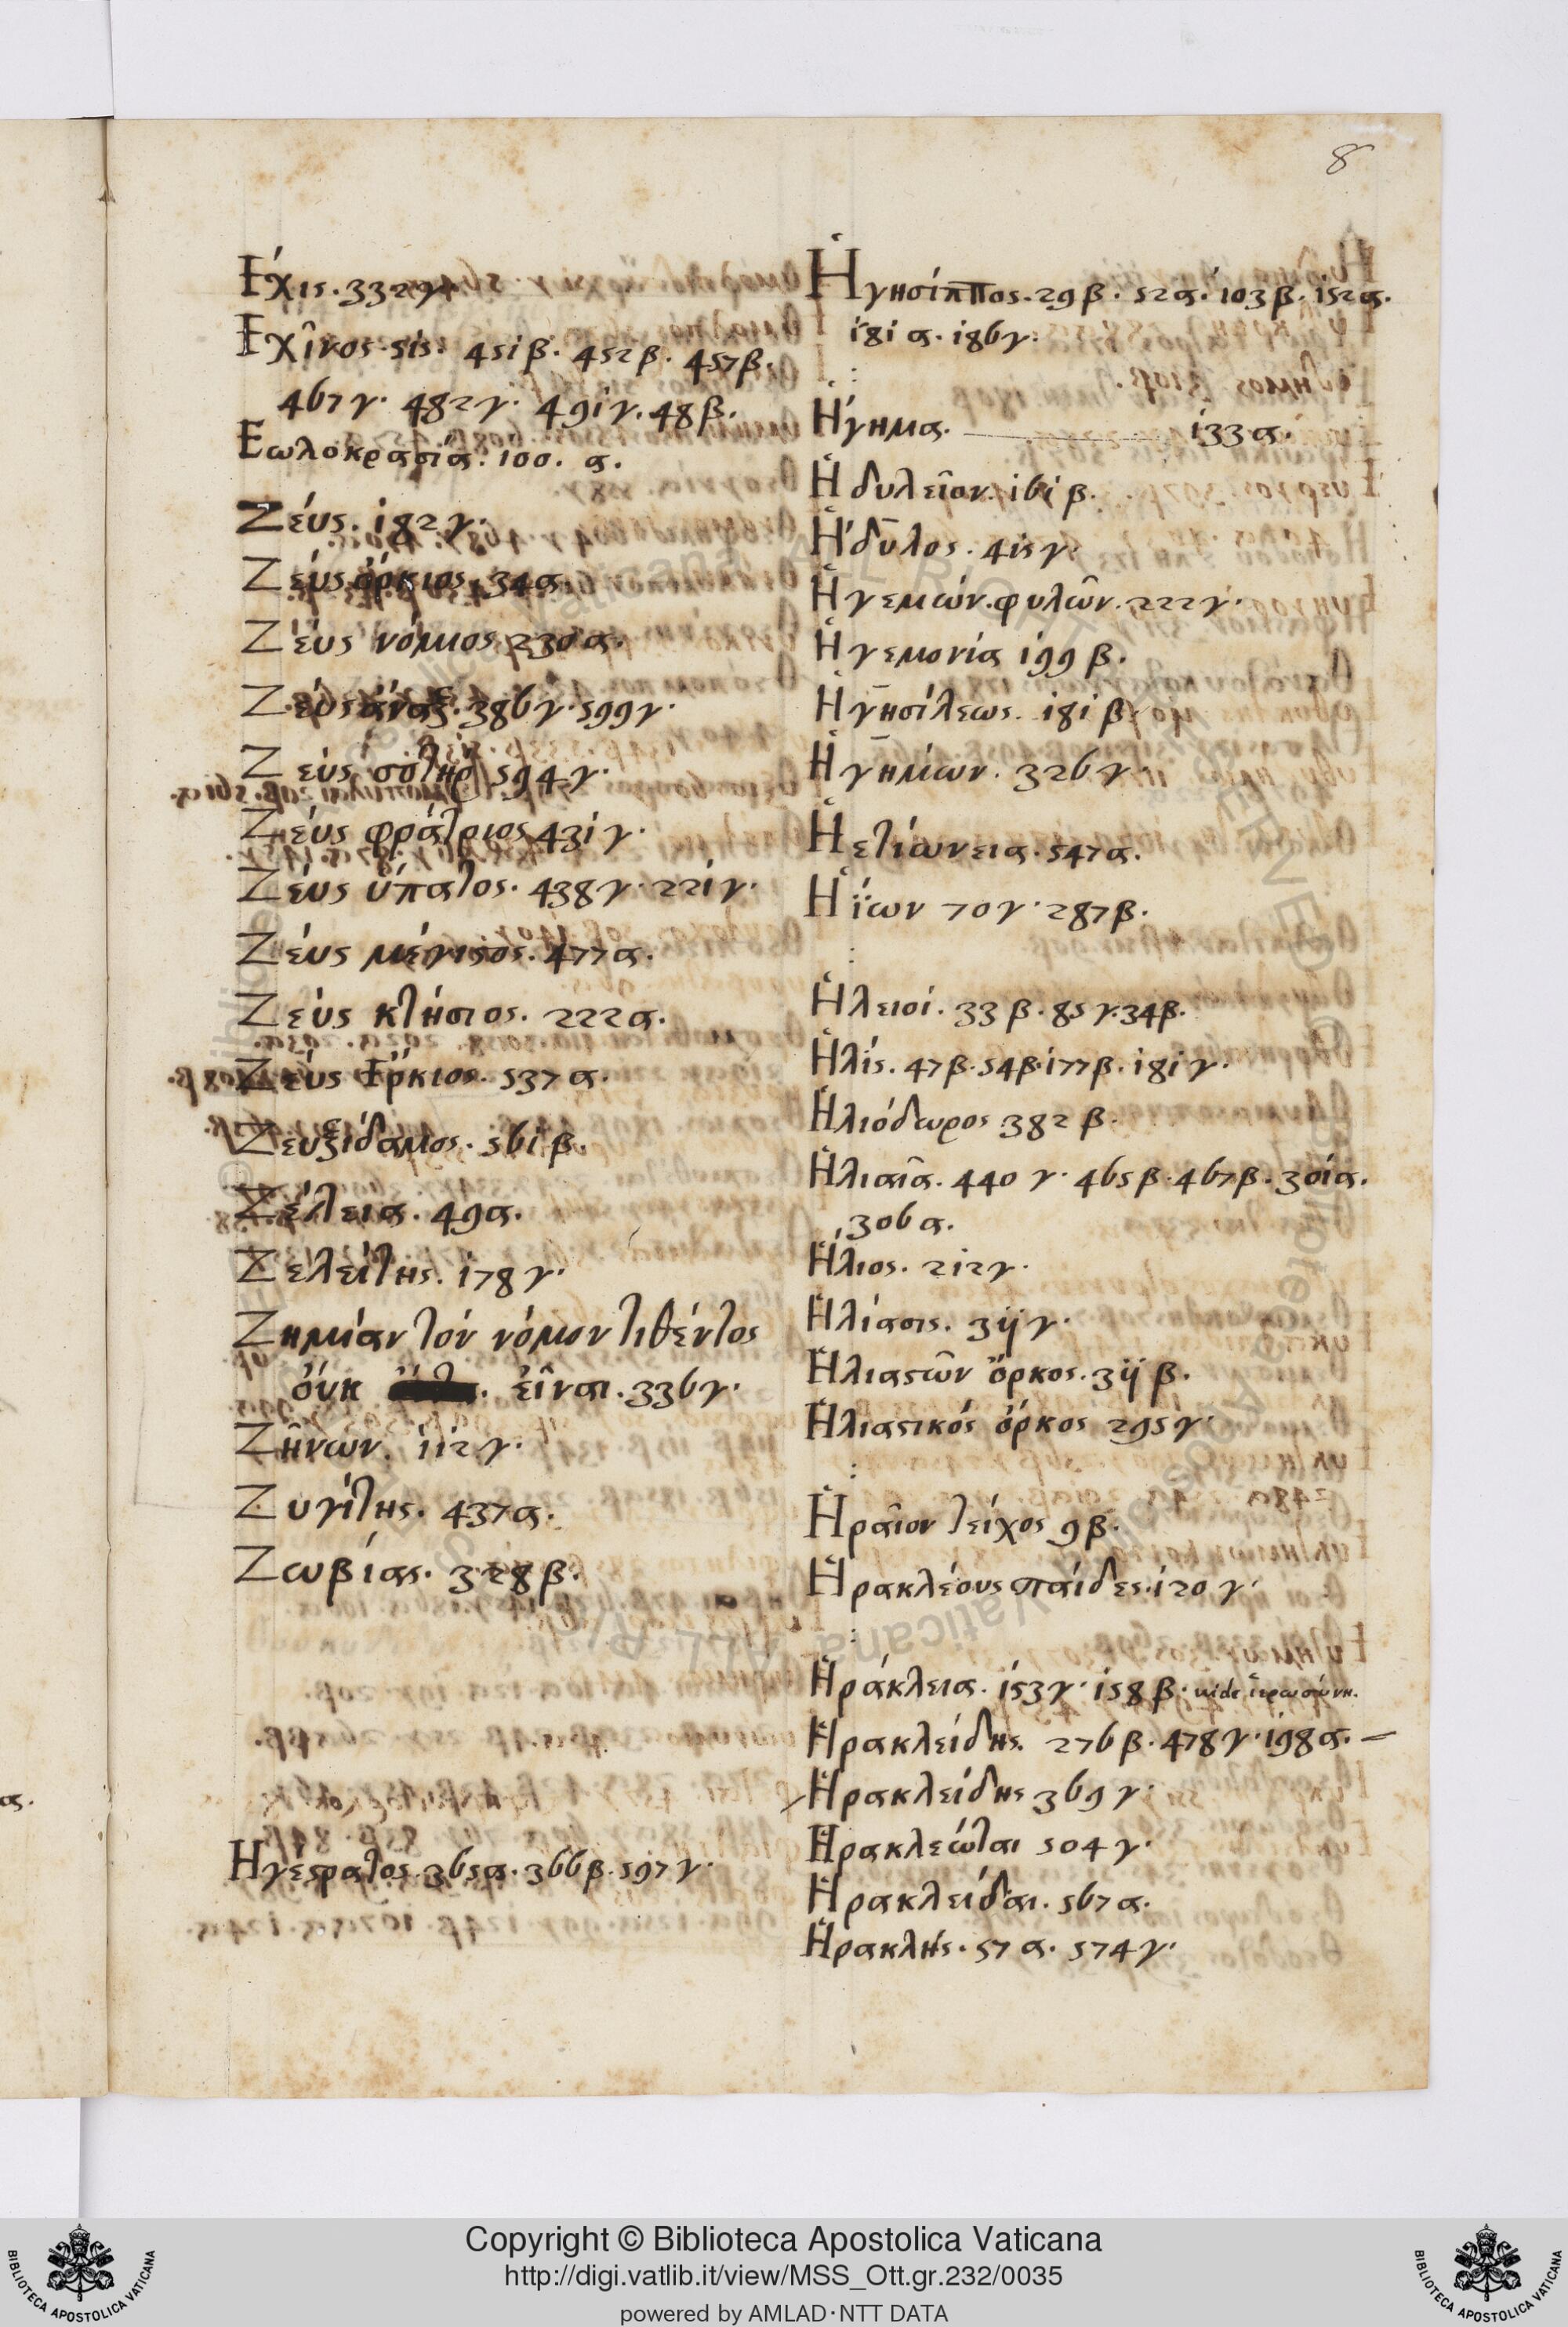 8
Ἔχις. 332γ
Ἐχῖνος. 515. 451β. 452β. 457β.
467γ. 482γ. 491γ. 48β.
Ἑωλοκρασία. 100. α.
Ζέυς. 182γ.
Ζέυς ὅρκιος. 34α.
Ζέυς νόμιος 230α.
Ζέυς ἄναξ. 386γ. 599γ.
Ζέυς σοτὴρ 594γ.
Ζέυς φράτριος 431γ.
Ζέυς ὕπατος. 438γ. 221γ.
Ζέυς μέγιστος. 477α.
Ζέυς κτήσιος. 222α.
Ζέυς Ἕρκιος. 537α.
Ζευξίδαμος. 561β.
Ζέλεια. 49α.
Ζελείτης. 178γ.
Ζημίαν τὸν νόμον τιθέντος
ὄυκ εἶναι. 336γ.
Ζήνων. 112γ.
Ζυγίτης. 437α.
Ζωβίας. 328β.
Ηγέστρατος. 365α. 366β. 597γ.
Ἡγησίππος. 29β. 52α. 103β. 152α.
181α. 186γ.
Ἥγημα. 133α.
Ἡδυλεῖον. 161β.
Ἥδυλος. 415γ.
Ἡγεμών. φυλῶν. 222γ.
Ἡγεμονία 199β.
Ἡγησίλεως. 181β
Ἡγήμων. 326γ.
Ἠετιώνεια. 547α.
Ἠϊών 70γ. 287β.
Ἠλειοί. 33β. 85γ. 34β.
Ἠλίς. 47β. 54β. 177β. 181γ.
Ἡλιόδωρος 382β.
Ἡλιαῖα. 440γ. 465β. 467β. 301α.
306α.
Ἥλιος. 212γ.
Ἡλίασις. 311γ.
Ἡλιαστῶν ὅρκος. 311β.
Ἡλιαστικός ὅρκος 295γ.
Ἡραῖον τεῖχος 9β.
Ἡρακλέους παίδες. 120γ.
Ἡράκλεια. 153γ. 158β. uide ἱερωσύνη.
Ἡρακλείδης. 276β. 478γ. 198α.
Ἡρακλείδης 369γ.
Ἡρακλεώται 504γ.
Ἡρακλείδαι. 567α.
Ἡρακλής. 57α. 574γ.
α.
Copyright © Biblioteca Apostolica Vaticana
http://digi.vatlib.it/view/MSS_Ott.gr.232/0035
powered by AMLAD·NTT DATA
BIBLIOTECA APOSTOLICA VATICANA
BIBLIOTECA APOSTOLICA VATICANA